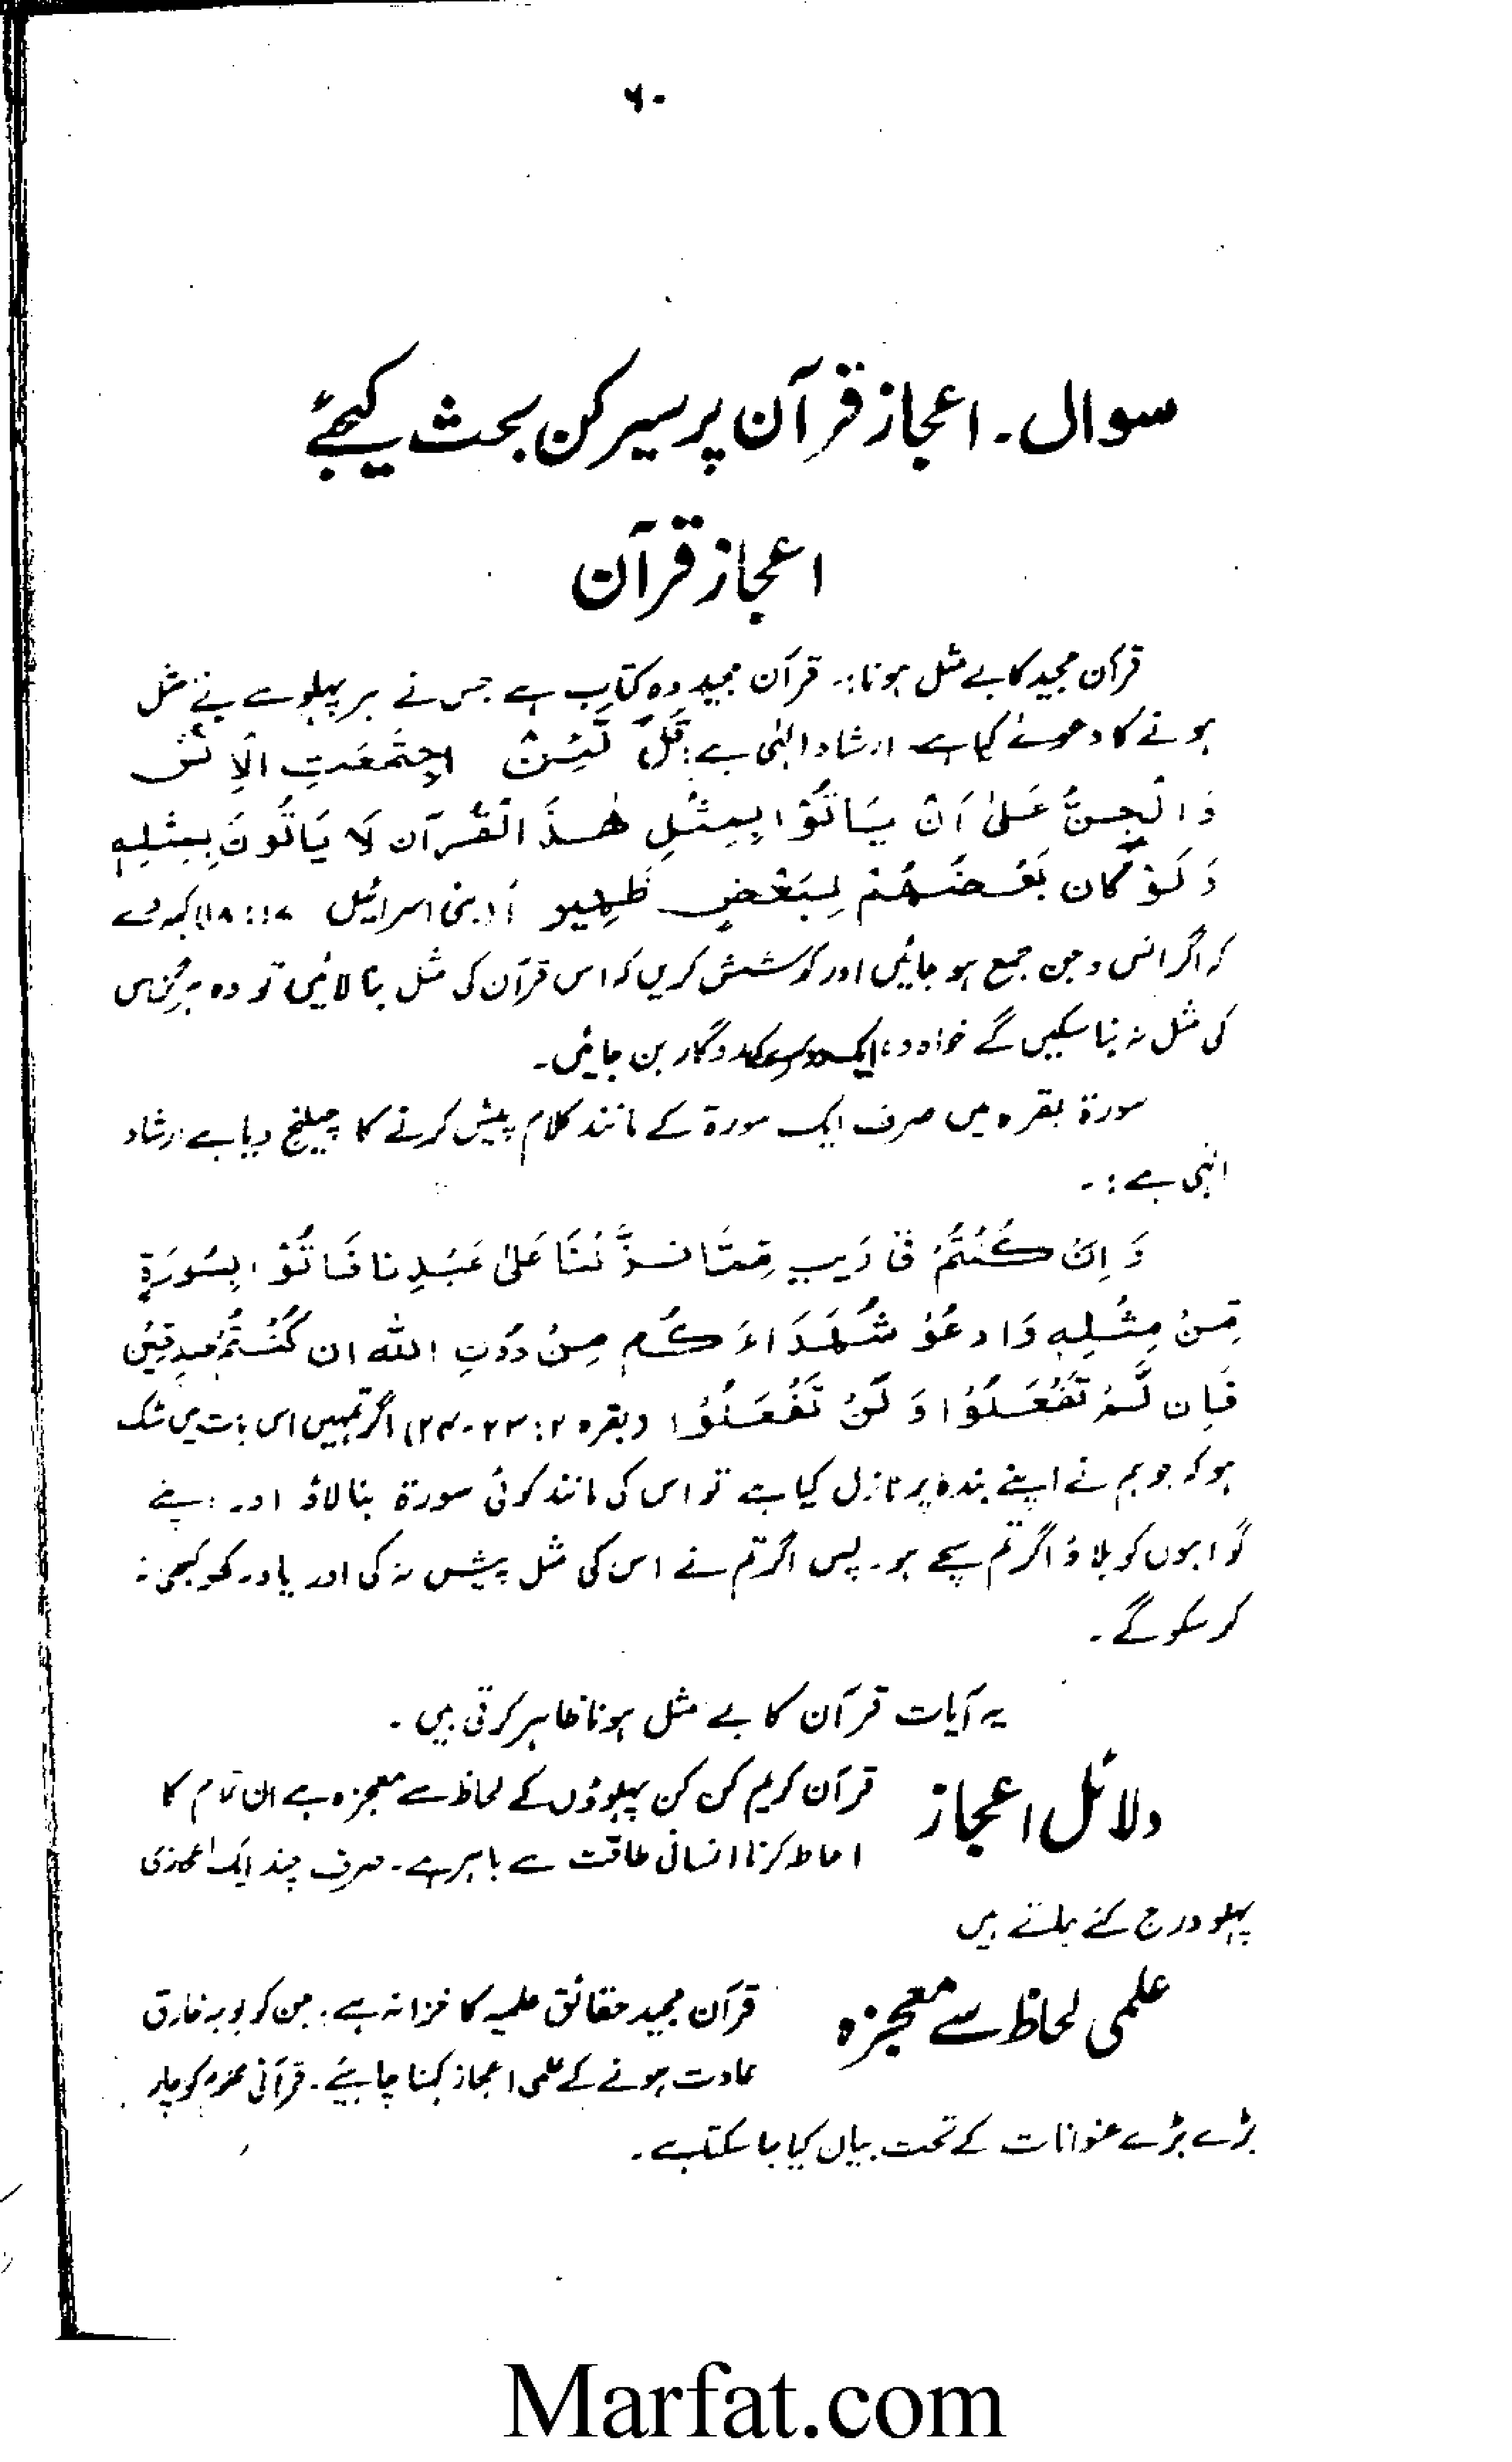 ۶۰
سوال۔ اعجاز قرآن پر سیر کن بحث کیجئے
اعجاز قرآن
قرآن مجید کا بے مثل ہونا:۔ قرآن مجید وہ کتاب ہے جس نے ہر پہلو سے بے مثل
ہونے کا دعوےٰ کیا ہے۔ ارشاد الٰہی ہے: قُلْ لَّئِنْ اجْتَمَعَتِ الْاِنْسُ
وَالْجِنُّ عَلىٰ اَنْ يَاتُوْا بِمِثْلِ هٰذَا الْقُرآن لَا يَاتُونَ بِمِثْلِهٖ
وَلَوْ كَان بَعْضُهُمْ لِبَعْضٍ ظَهِيرا (بنی اسرائیل ۱۷: ۸۸) کہہ دے
کہ اگر انس و جن جمع ہو جائیں اور کوشش کریں کہ اس قرآن کی مثل بنا لائیں تو وہ ہرگز اس
کی مثل نہ بنا سکیں گے خواہ وہ ایک دوسرے کے مددگار بن جائیں۔
سورۃ بقرہ میں صرف ایک سورۃ کے مانند کلام پیش کرنے کا چیلنج دیا ہے ارشاد
الٰہی ہے:۔
وَاِنْ كُنْتُمْ فى رَيبٍ مِّمَّا نَزَّلْنَا عَلىٰ عَبْدِنا فَاتُوْا بِسُورَةٍ
مِّنْ مِثْلِهٖ وَادعُوْا شُهَدَاءَ كُم مِنْ دُوْنِ الله ان كُنْتُمْ صٰدِقِيْن
فَاِن لَّمْ تَفْعَلُوْا وَلَنْ تَفْعَلُوْا (بقرہ ۲: ۲۳۔۲۴) اگر تمہیں اس بات میں شک
ہو کہ جو ہم نے اپنے بندہ پر نازل کیا ہے تو اس کی مانند کوئی سورۃ بنا لاؤ اور اپنے
گواہوں کو بلاؤ اگر تم سچے ہو۔ پس اگر تم نے اس کی مثل پیش نہ کی اور یاد رکھو کبھی نہ
کر سکو گے۔
یہ آیات قرآن کا بے مثل ہونا ظاہر کرتی ہیں۔
دلائل اعجاز قرآن کریم کن کن پہلوؤں کے لحاظ سے معجزہ ہے ان تمام کا
احاطہ کرنا انسانی طاقت سے باہر ہے۔ صرف چند ایک اعجازی
پہلو درج کئے جاتے ہیں
علمی لحاظ سے معجزہ قرآن مجید حقائق علمیہ کا خزانہ ہے۔ جن کو بوجہ خارق
عادت ہونے کے علمی اعجاز کہنا چاہیئے۔ قرآنی علوم کو چار
بڑے بڑے عنوانات کے تحت بیان کیا جا سکتا ہے۔
Marfat.com